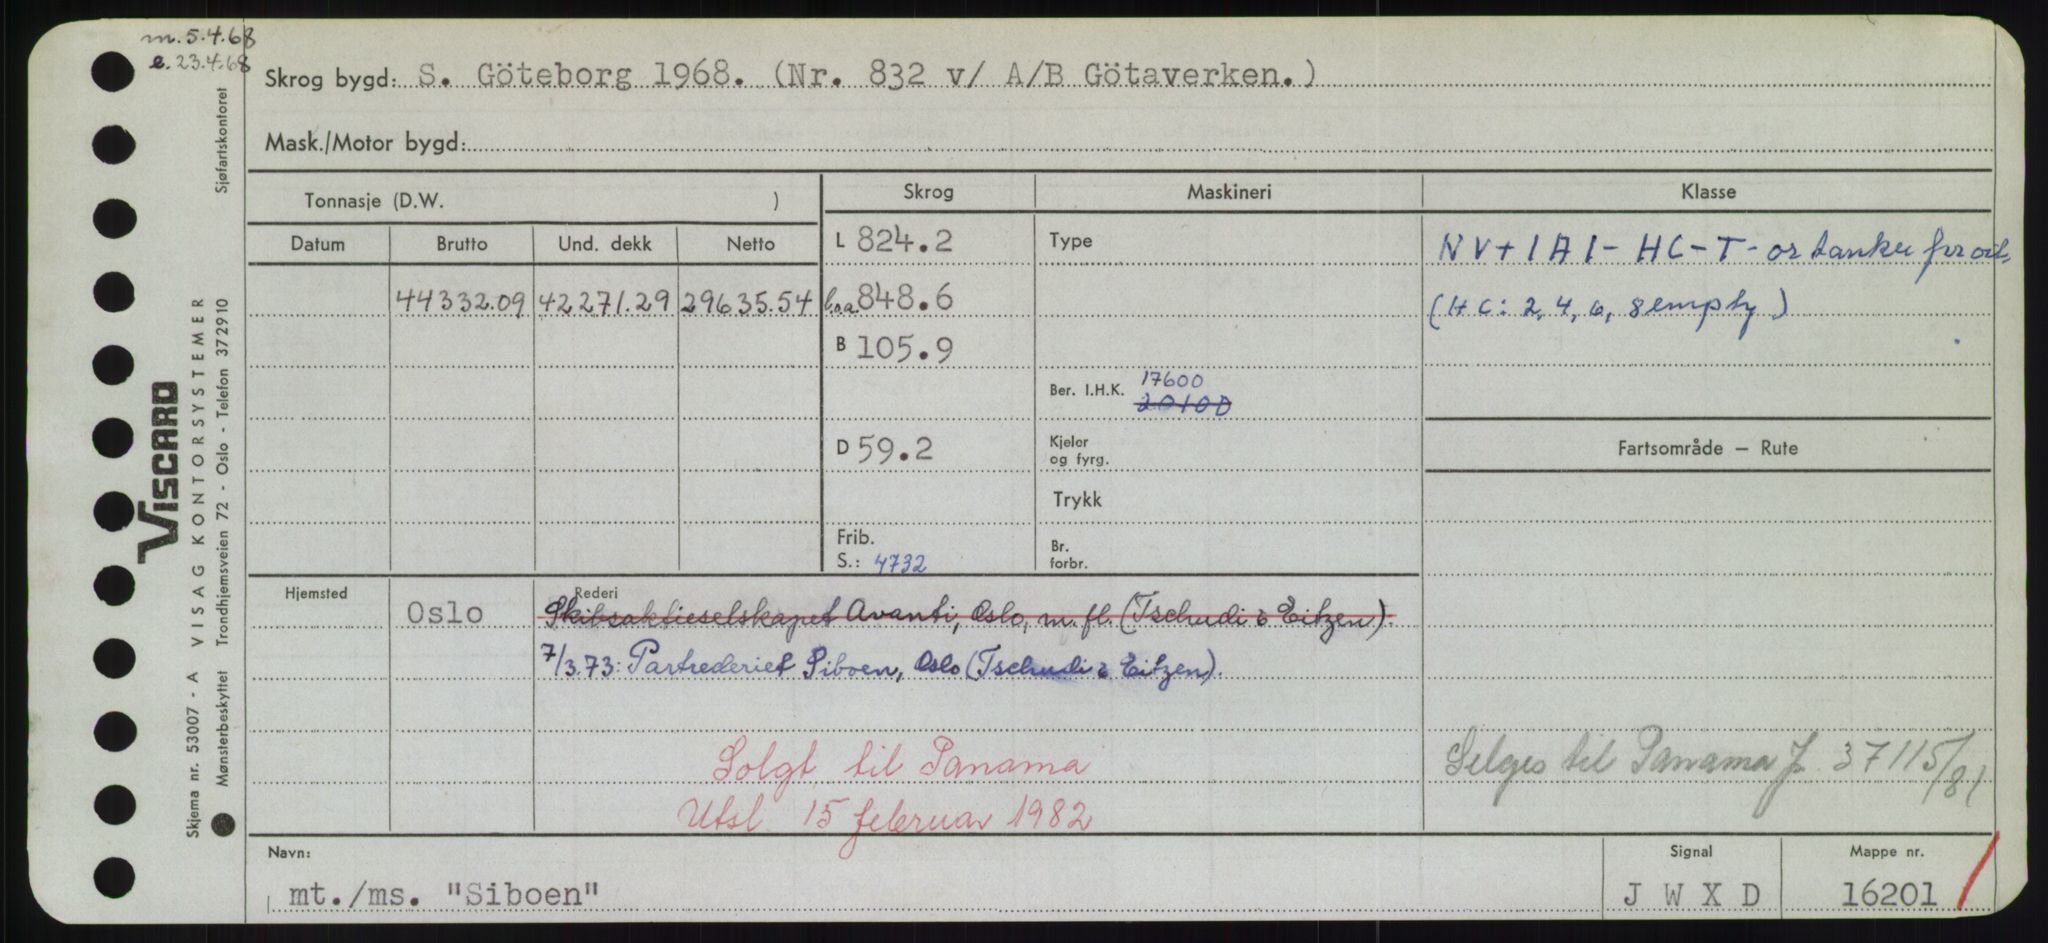 m. 5.4.68
e. 23.4.68
Skrog bygd: S. Göteborg 1968. (Nr. 832 v/ A/B Götaverken.)
Mask./Motor bygd:
Tonnasje (D.W. )
Skrog
Maskineri
Klasse
Datum Brutto Und. dekk Netto
L 824.2
Type
NV+1A1-HC-T- or tanker for oil,
44332.09 42271.29 29635.54
l.o.a. 848.6
(HC: 2, 4, 6, 8 empty)
B 105.9
Ber. I.H.K. 17600
20100
D 59.2
Kjeler
og fyrg.
Fartsområde — Rute
Trykk
Frib.
S.: 4732
Br.
forbr.
Hjemsted
Rederi
Oslo
Skibsaktieselskapet Avanti, Oslo, m. fl. (Tschudi & Eitzen).
7/3.73: Partrederiet Siboen, Oslo (Tschudi & Eitzen).
Solgt til Panama
Selges til Panama J. 37115/81
Utsl. 15 februar 1982
Navn:
mt./ms. "Siboen"
Signal
J W X D
Mappe nr.
16201
VISCARD
Skjema nr. 53007 - A VISAG KONTORSYSTEMER
Mønsterbeskyttet Trondhjemsveien 72 - Oslo - Telefon 372910 Sjøfartskontoret